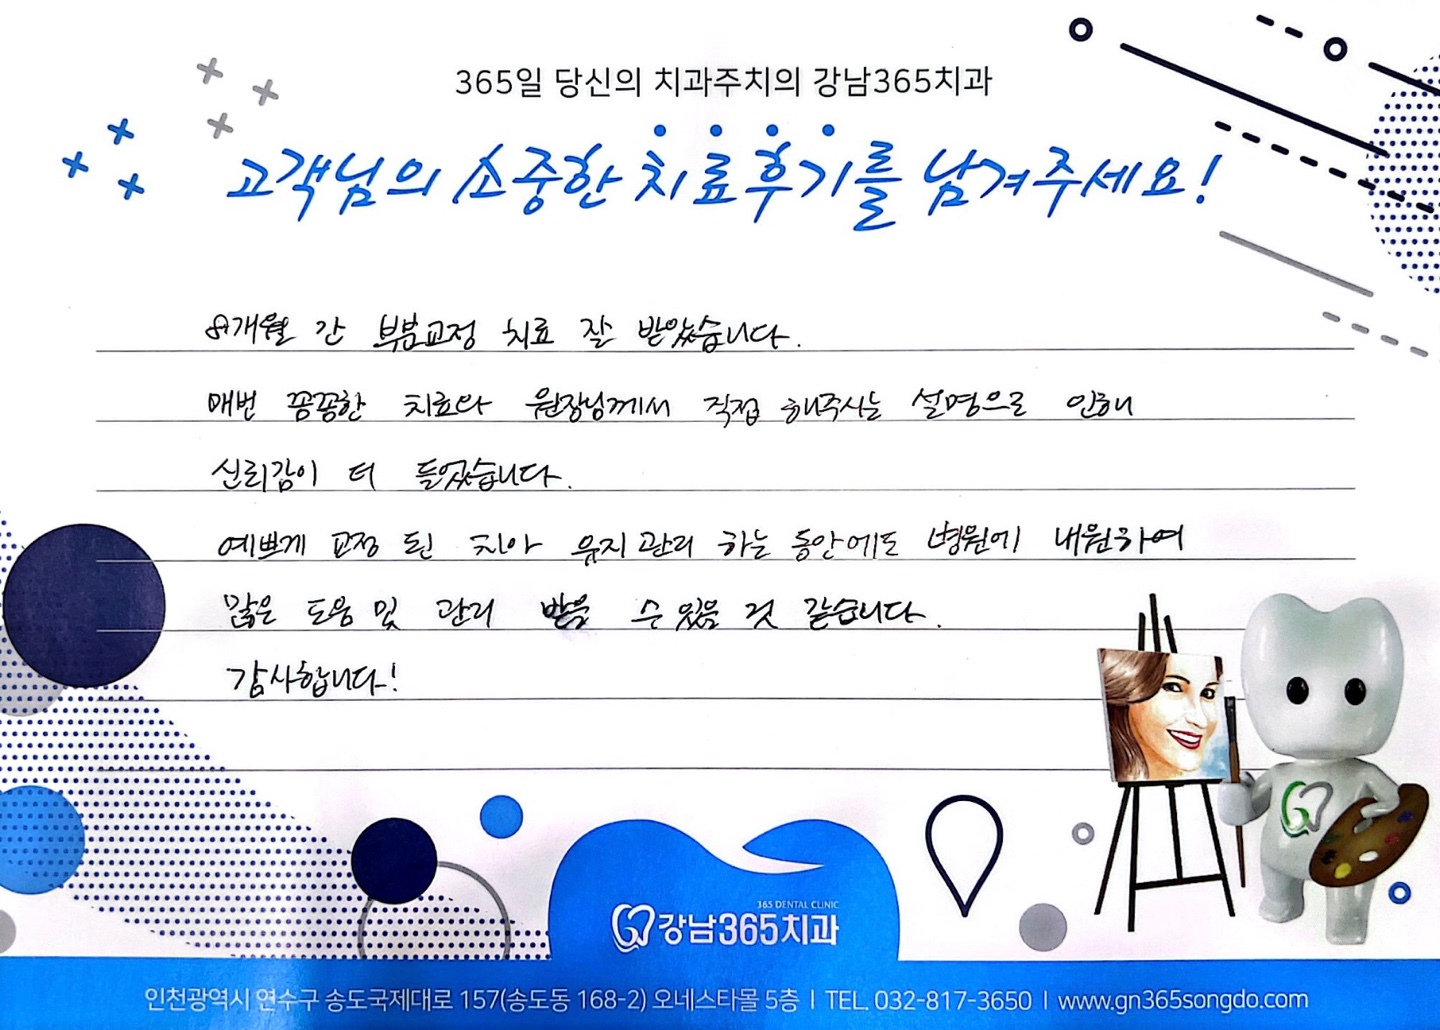 365일 당신의 치과주치의 강남365치과
고객님의 소중한 치료후기를 남겨주세요!
8개월 간 부분교정 치료 잘 받았습니다.
매번 꼼꼼한 치료와 원장님께서 직접 해주시는 설명으로 인해
신뢰감이 더 들었습니다.
예쁘게 교정 된 치아 유지관리 하는 동안에도 병원에 내원하여
많은 도움 및 관리 받을 수 있을 것 같습니다.
감사합니다!
365 DENTAL CLINIC
강남365치과
인천광역시 연수구 송도국제대로 157(송도동 168-2) 오네스타몰 5층 l TEL. 032-817-3650 l www.gn365songdo.com